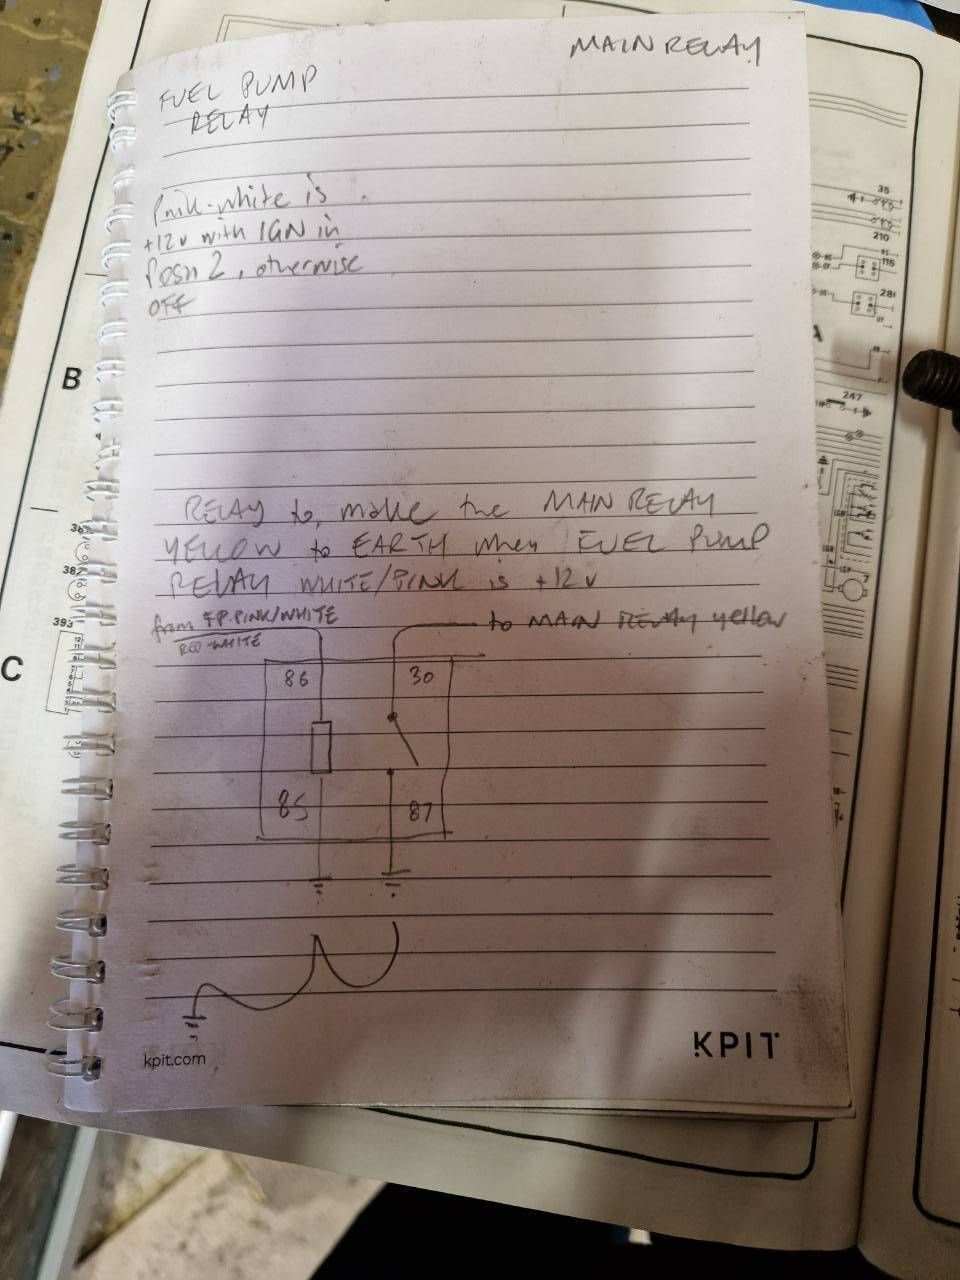 MAIN RELAY
FUEL PUMP
RELAY
Pink-white is
+12v with IGN in
Posn 2, otherwise
OFF
RELAY to make the MAIN RELAY
YELLOW to EARTH when FUEL PUMP
RELAY WHITE/PINK is +12v
from F.P. PINK/WHITE
to MAIN RELAY yellow
RED-WHITE
86
30
85
87
kpit.com
KPIT
B
C
393
35
210
115
281
A
247
7